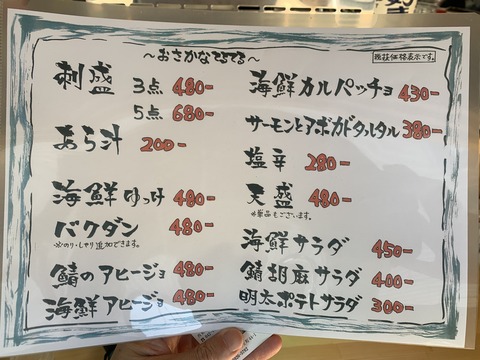 〜おさかなでるてる〜
税抜価格表示です。
刺盛 3点 480-
5点 680-
あら汁 200-
海鮮ゆっけ 480-
バクダン 480-
※のり・しゃり追加できます。
鯖のアヒージョ 480-
海鮮アヒージョ 480-
海鮮カルパッチョ 430-
サーモンとアボカドタルタル 380-
塩辛 280-
天盛 480-
※単品もございます。
海鮮サラダ 450-
鯖胡麻サラダ 400-
明太ポテトサラダ 300-